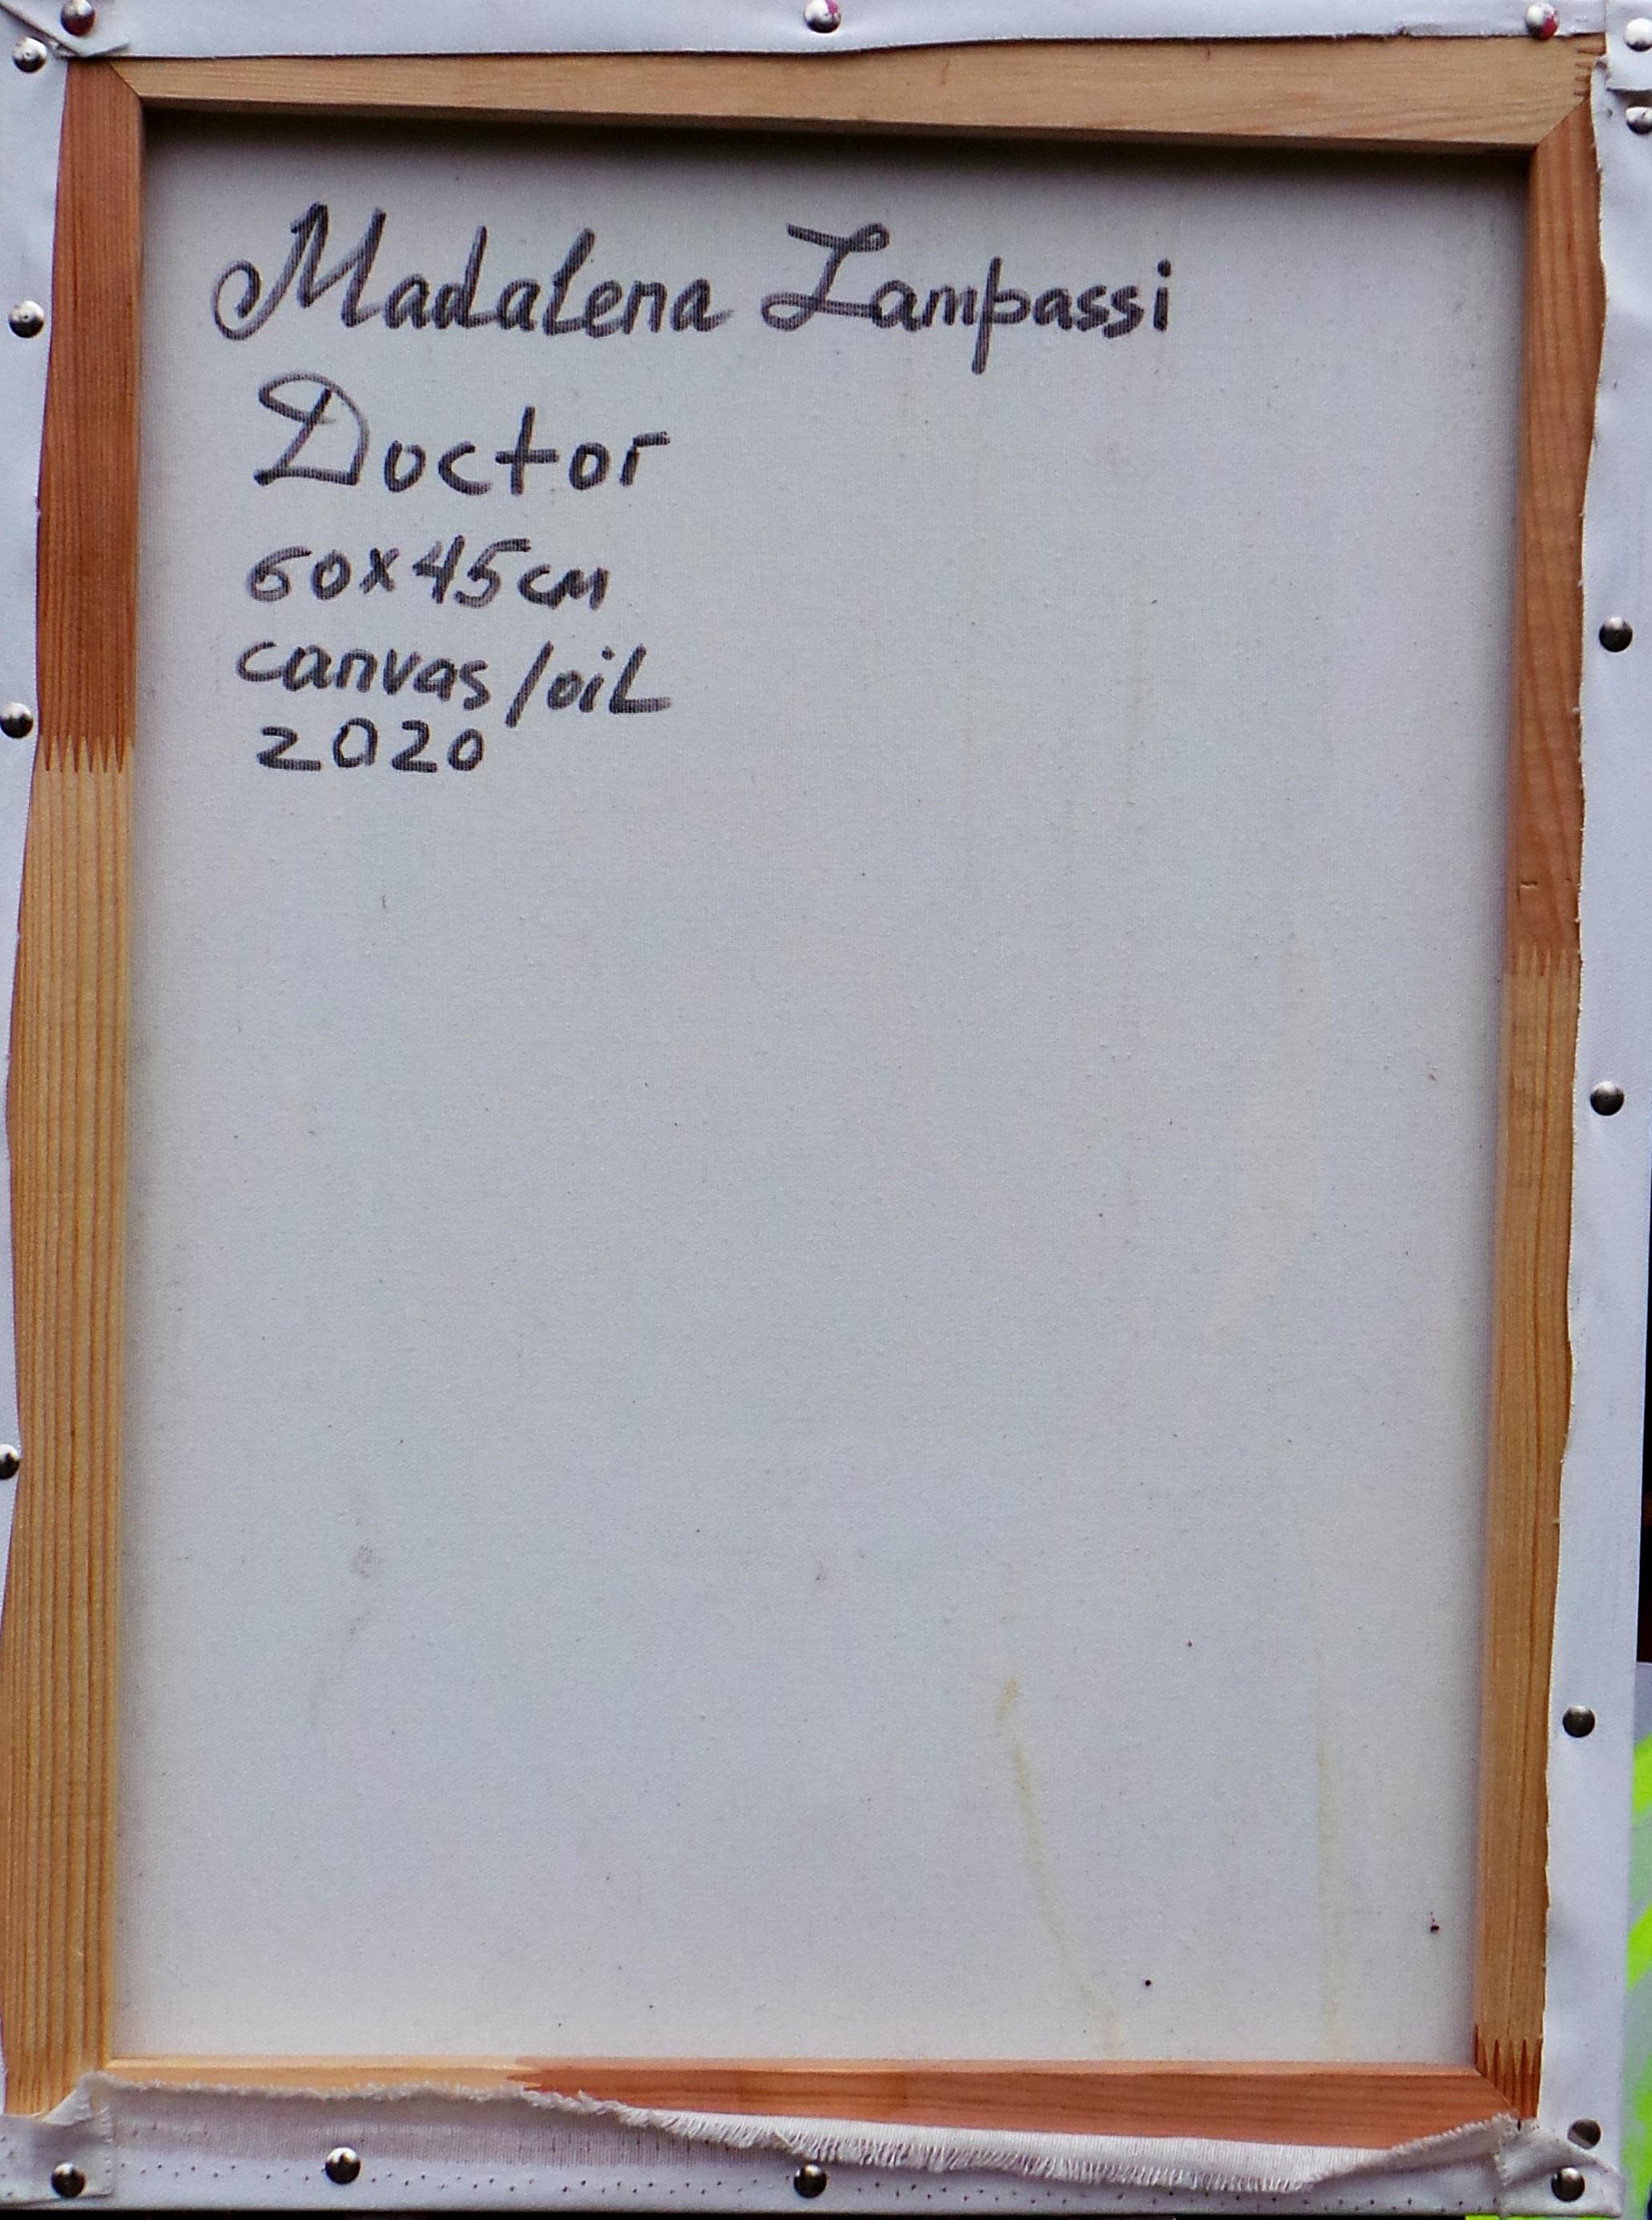 Madalena Lampassi
Doctor
60x45cm
canvas/oil
2020